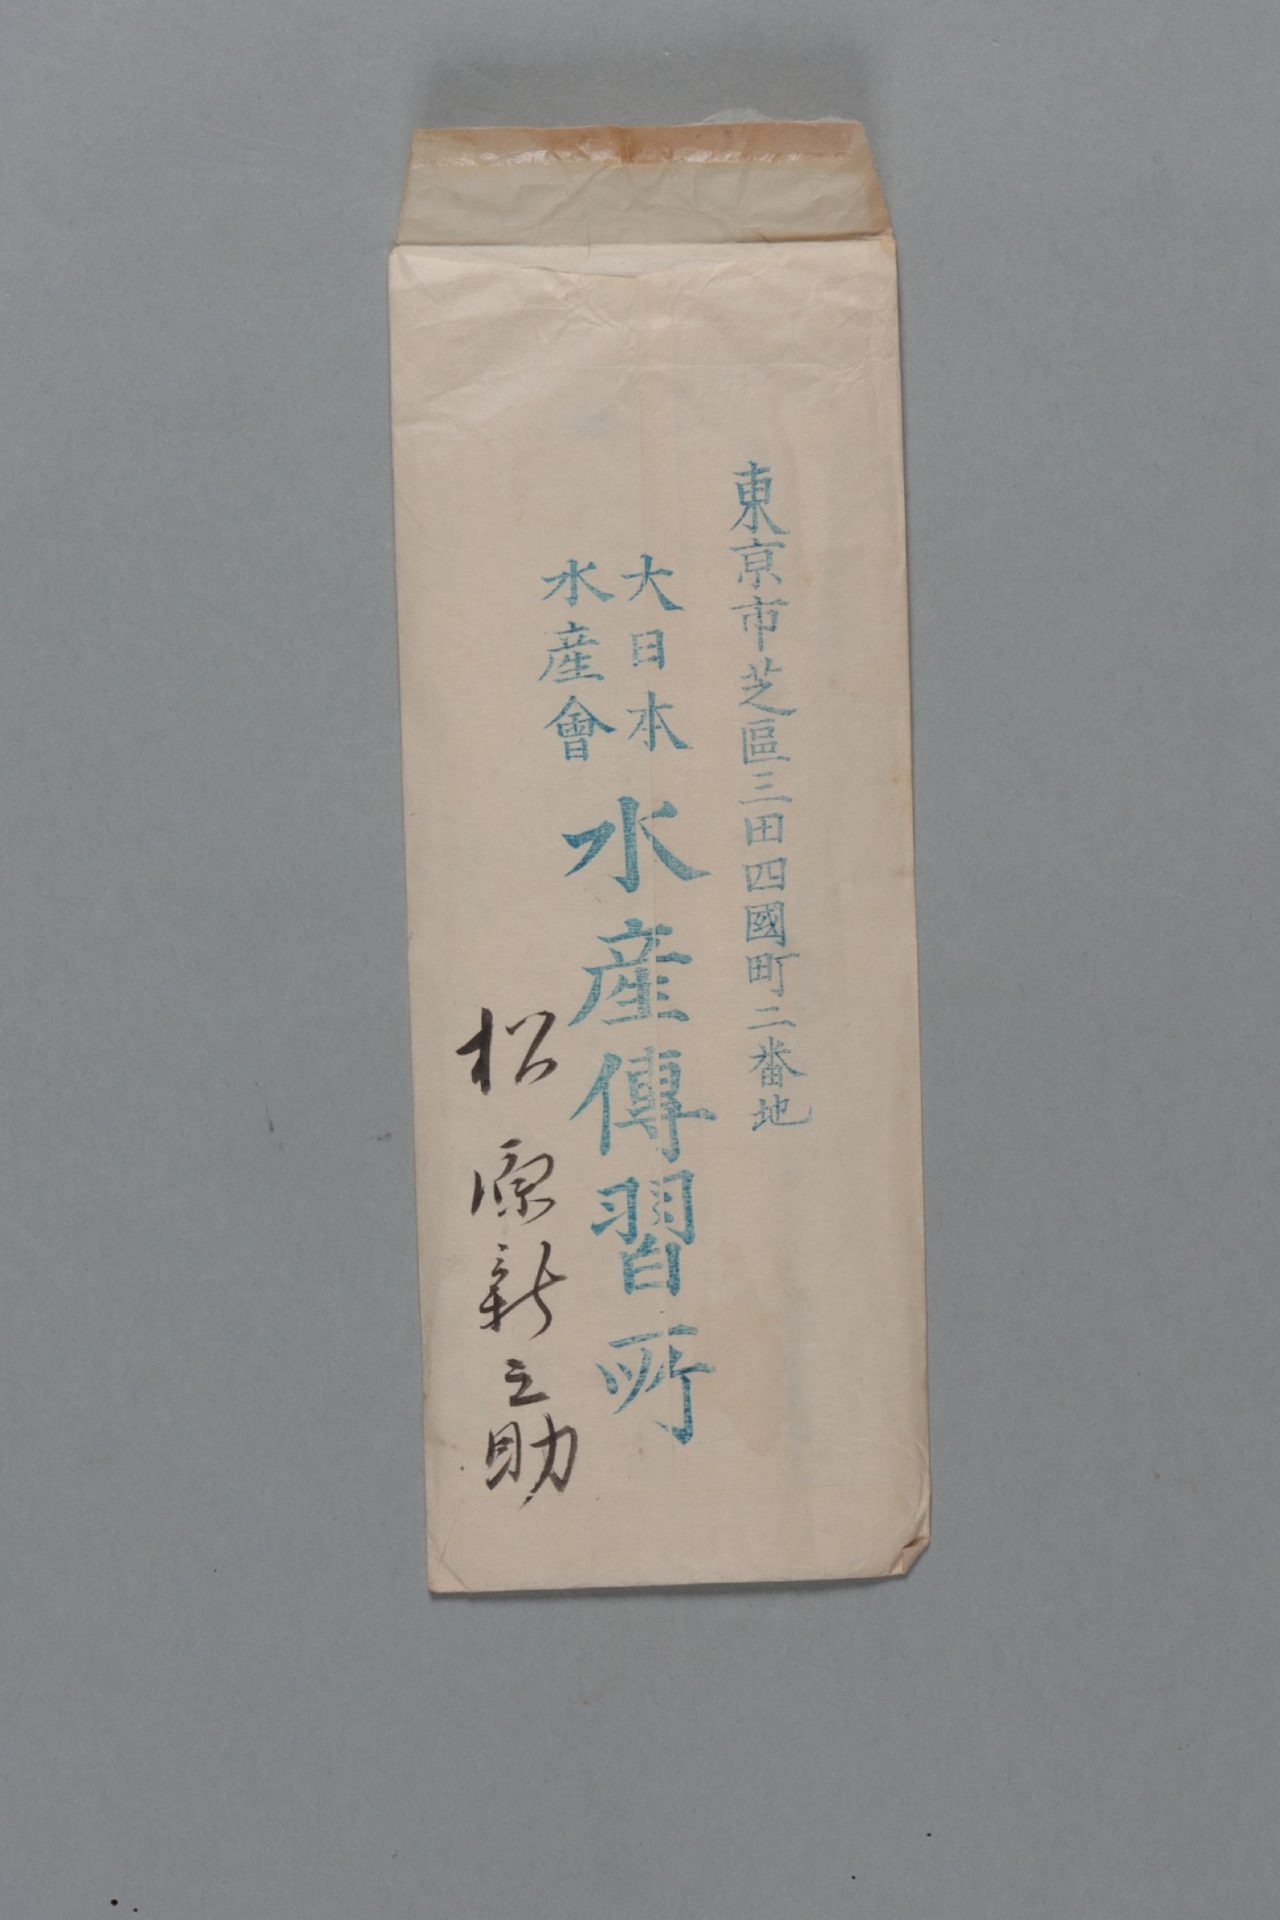 東京市芝區三田四國町二番地
大日本
水産會
水産傳習所
松原新之助